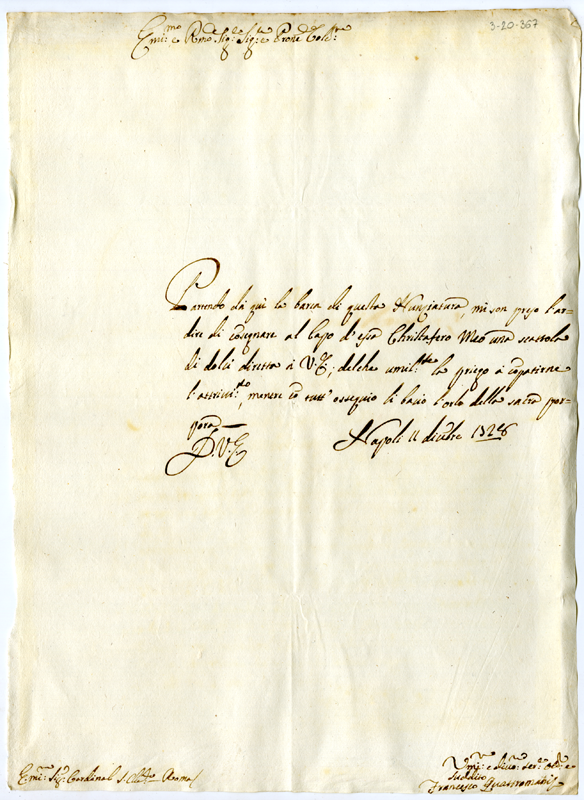 3-20-367
Em:mo e Rmo Sig:re Sig:re e Prone Col:mo
Partendo da quì la barca di questa Nunziatura, mi son preso l'ar-
dire di cõsegnare al Capo d'essa Christofero Meo una scattola
di dolci diretta à V.E.; delche umil:te la priego à cõpatirne
l'attrivi:to, mentre cõ tutt'ossequio li bacio l'orlo della sacra por-
pora
D.V.E. Napoli 11 dicẽbre
Em: Sig: Cardinal Roma
Um: e divo: ser:
suddito
Francesco